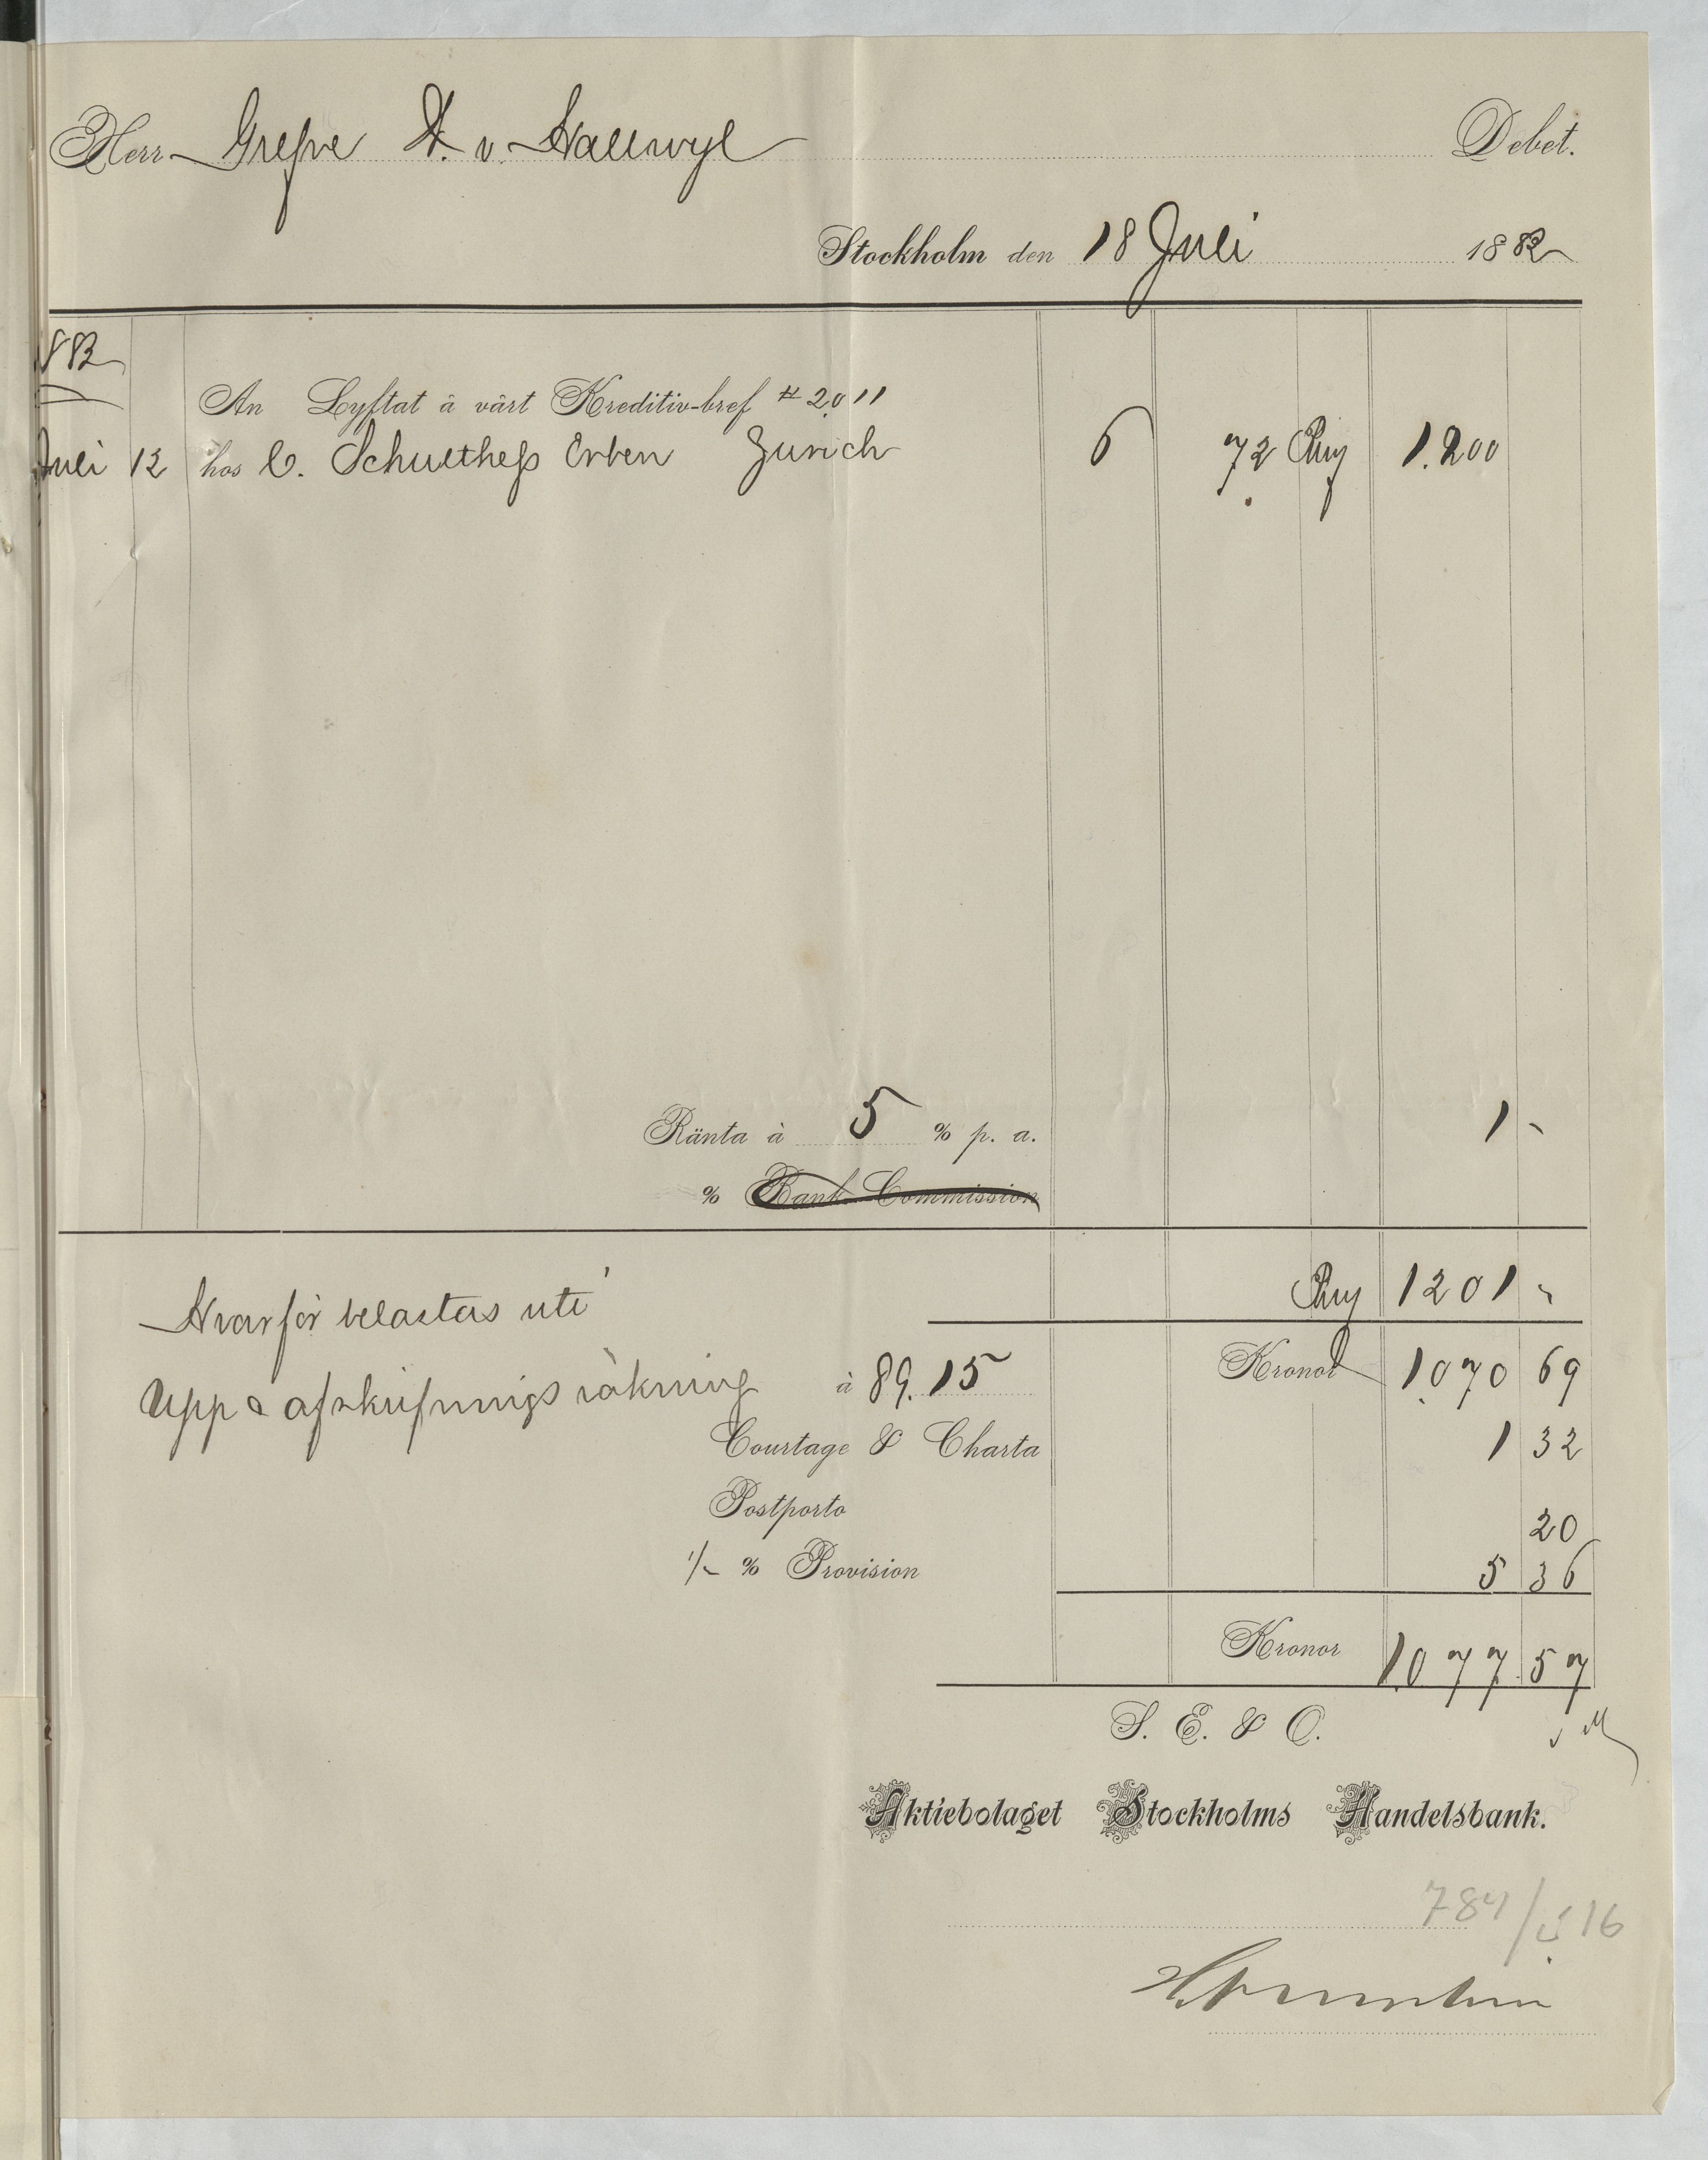 Herr Grefve W. v. Hallwyl Debet.
Stockholm den 18 Juli 1882
882
An Lyftat å vårt Kreditiv-bref # 2011
Juli 12 hos C. Schulthess Erben Zurich 6 72 1.200
Ränta à 5 % p. a. 1 -
% Bank Commission
1201 -
Hvarför belastas uti
Upp & afskrifnings räkning à 89.15 Kronor 1.070 69
Courtage & Charta 1 32
Postporto 20
% Provision 5 36
Kronor 1.077 57
S. E. & O.
Aktiebolaget Stockholms Handelsbank.